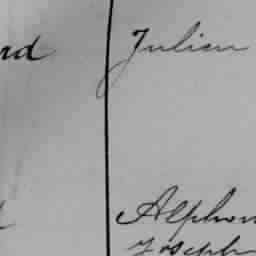 rd Julien
Alphon
Joseph